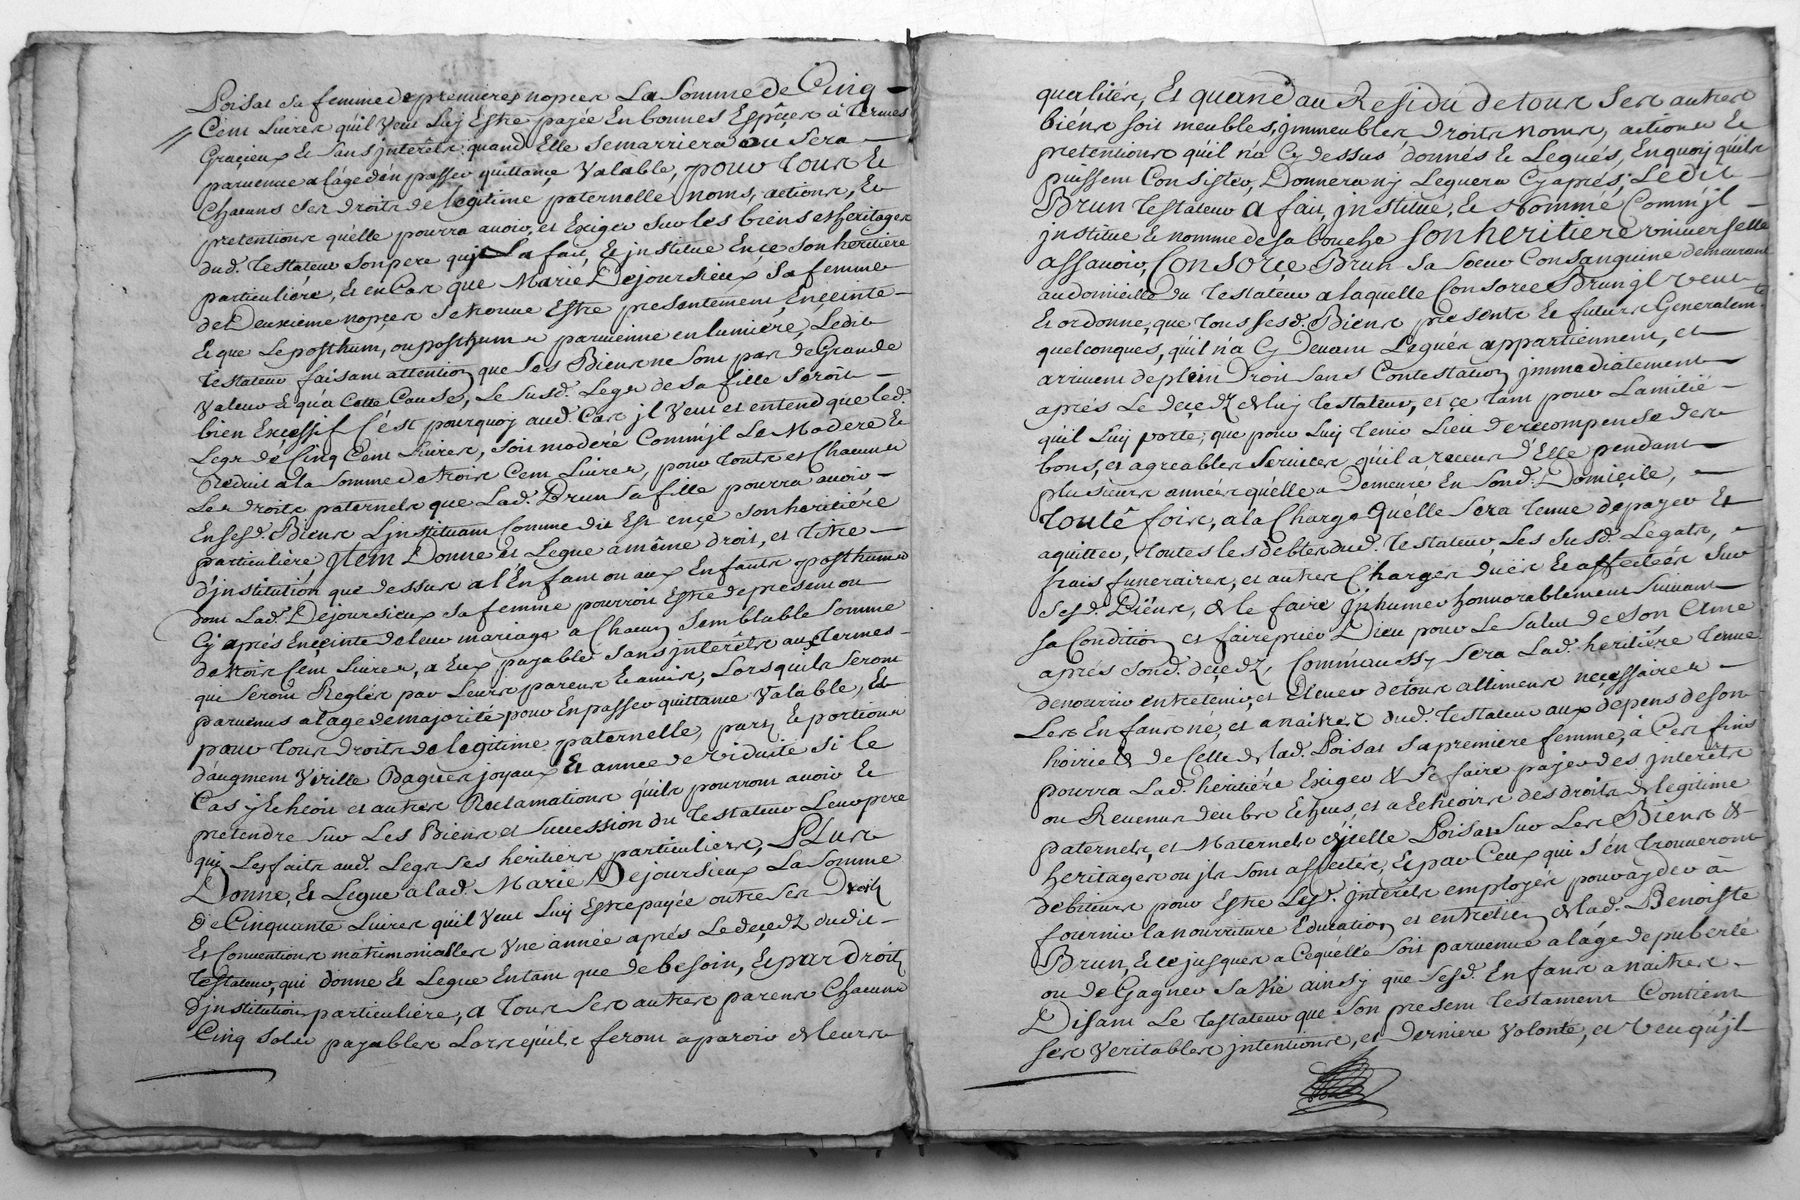 Poisat sa femme de premieres nopces La Somme de Cinq
Cent Livres qu'il veut Luy Estre payée En bonnes Espéces à termes
Gracieux Et Sans jnterêts quand Elle se marriera ou sera
parvenue a lâge d'en passer quittance Valable, pour tous Et
Chacuns ses droits de légitime paternelle noms, actions, Et
pretentions qu'elle pourra avoir, et Exiger sur les biens et heritages
dud. testateur son pere qui La fait, Et jnstitue En ce son heritiére
particuliére, Et en Cas que Marie Dejoursieux sa femme
de Deuxieme nopces se trouve Estre presentement Enceinte
Et que Le posthum, ou posthume parvienne en lumiére, Ledit
testateur faisant attention que ses Biens ne sont pas de Grande
valeur Et qu'a Cette Cause, Le susd. Legs de sa fille seroit
bien Excessif C'ést pourquoy aud. Cas jl veut et entend que led.
Legs de Cinq Cent Livres, soit moderé Comm'jl Le Modere Et
Reduit a la somme de trois Cent Livres, pour touts et Chacuns
Les droits paternels que Lad. Brun sa fille pourra avoir
En sesd. Biens L'jnstituant Comme dit Est en ce son heritiére
particuliére, jtem Donne et Legue a même droit, et titre
d'jnstitution que dessus a l'Enfant ou aux Enfants posthumes
dont Lad. Dejoursieux sa femme pourroit Estre de present ou
Cy aprés Enceinte de leur mariage a Chacun semblable somme
de trois Cent Livres, a Eux payable sans jnterêts aux termes
qui seront Reglés par Leurs parens Et amis, Lorsqu'ils seront
parvenus a lage de majorité pour En passer quittance valable, Et
pour tous droits de legitime paternelle, parts Et portions
d'augment virille Bagues joyaux Et année de viduité si le
Cas y Echeoit et autres Reclamations qu'ils pourront avoir Et
pretendre sur Les Biens et succession du testateur Leur pere
qui Les faits aud. Legs ses heritiers particuliers, Plus
Donne, Et Legue a lad. Marie Dejoursieux La somme
de Cinquante Livres qu'il veut Luy Estre payée outre ses Droits
Et Conventions matrimonialles Une année aprés Le decedz dudit
testateur, qui donne Et Legue En tant que de besoin, Et par droit
d'jnstitution particuliére, a tous ses autres parens Chacuns
Cinq sols payables Lors qu'ils feront aparoir de leurs
qualités, Et quand au Residu de tous ses autres
biéns soit meubles, jmmeubles, droits noms, actions Et
pretentions qu'il n'a Cy dessus donnés Et Legués, En quoy qu'ils
puissent Consister, Donnera ny Leguera Cy aprés, Ledit
Brun testateur a fait, jnstitué, Et Nommé Comm'jl
jnstitue Et nomme de sa bouche son heritiere universelle
assavoir, Consorce Brun sa soeur Consanguine demeurant
au domicille du testateur a laquelle Consorce Brun jl veut
Et ordonne, que tous sesd. Biens presents Et futurs Generalemt.
quelconques, qu'il n'a Cy Devant Legués appartiennent, et
arrivent de plein Droit sans Contestation jmmediatement
aprés Le decedz de luy testateur, et ce tant pour Lamitié
qu'il Luy porte, que pour Luy tenir Lieu de recompense des
bons, et agreables services qu'il a receus d'Elle pendant
plusieurs années qu'elle a Demeuré En sond. Domicile,
toute fois, a la Charge Qu'elle sera tenue de payer Et
aquitter, toutes les debtes dud. testateur, Les susd. Legats,
frais funeraires, et autres Charges duës Et affectées sur
sesd. Biéns, de le faire jnhumer honnorablement suivant
sa Condition et faire prier Dieu pour Le salut de son Ame
aprés sond. decedz, Comm'aussy sera Lad. heritiére tenue
de nourrir entretenir, et Elever de tous alliments necessaires
Les Enfans né, et a naitre dud. testateur aux depens de son
hoirie & de Celle de lad. Poisat sa premiere femme, à Ces fins
pourra Lad. heritiére Exiger & se faire payer des jnterêts
ou Revenus deubs Echeus, et a Echeoir des droits de legitime
paternels, et Maternels d'jcelle Poisat sur Les Biens &
heritages ou jls sont affectés, Et par Ceux qui s'en trouveront
debiteurs pour Estre Lesd. jnterêts employés pour ayder à
fournir la nourriture Education et entretien de lad. Benoiste
Brun, Et ce jusques a Ce qu'elle soit parvenue a lâge de puberté
ou de Gagner sa vie ainsy que sesd. Enfans a naitre
Disant Le testateur que son present testament Contient
ses veritables jntentions, et Derniere volonté, et veu qu'jl